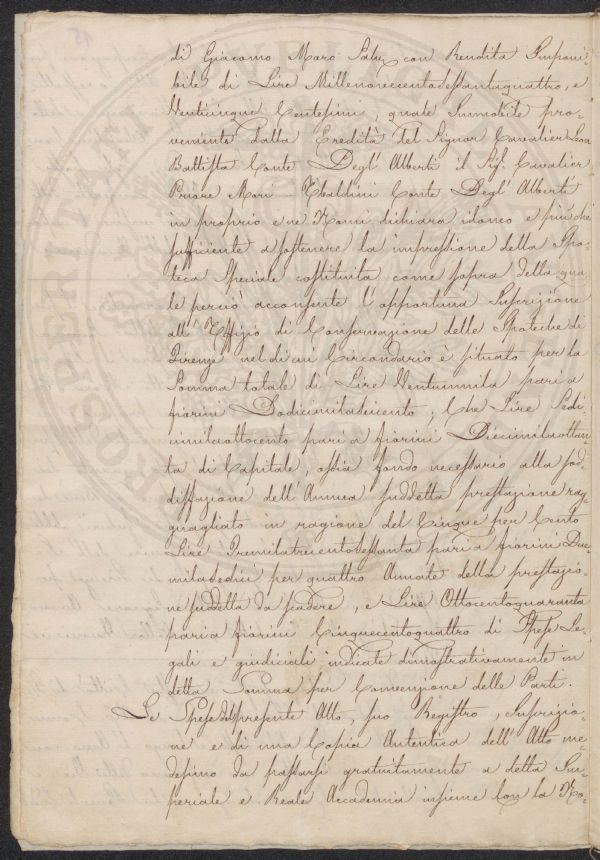 di Giacomo Moro Pater con Rendita Imponi=
bile di Lire Millenovecentosessantaquattro, e
Venticinque Centesimi, quale Immobile pro=
veniente dalla Eredità del Signor Cavalier Leon
Battista Conte Degl' Alberti il Sig. Cavalier
Priore Mari Tbaldini Conte Degl' Alberti
in proprio e ne Nomi dichiara idoneo e più che
sufficiente a sostenere la impressione della Ipo=
teca Speciale costituita come sopra della qua
le perciò acconsente l'opportuna Inscrizione
all' Uffizio di Conservazione delle Ipoteche di
Firenze nel di cui Circondario è situato per la
Somma totale di Lire Ventunmila pari a
fiorini Dodicimilaseicento; Che Lire Sedi=
cimilaottocento pari a fiorini Diecimilaottan
ta di Capitale, ossia fondo necessario alla sod=
disfazione dell' Annua suddetta prestazione rag=
guagliato in ragione del Cinque per Cento
Lire Tremilatrecentosessanta pari a fiorini Due
milasedici per quattro Annate della prestazio=
ne suddetta da scadere, e Lire Ottocentoquaranta
pari a fiorini Cinquecentoquattro di Spese Le=
gali e giudiciali indicate dimostrativamente in
detta Somma per Convenzione delle Parti.
Le Spese del presente Atto, suo Registro, Inscrizio=
ne e di una Copia Autentica dell' Atto me=
desimo da passarsi gratuitamente a detta Im=
periale e Reale Accademia insieme con la No=